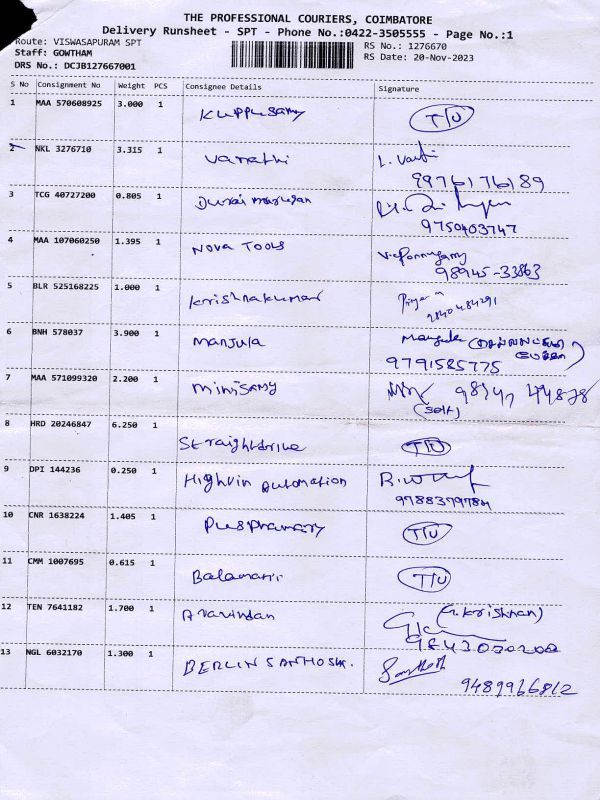 THE PROFESSIONAL COURIERS, COIMBATORE
Delivery Runsheet - SPT - Phone No.:0422-3505555 - Page No.:1
Route: VISWASAPURAM SPT RS No.: 1276670
Staff: GOWTHAM RS Date: 20-Nov-2023
DRS No.: DCJB127667001
S No Consignment No Weight PCS Consignee Details Signature
1 MAA 570608925 3.000 1 Kuppusamy T/U
2 NKL 3276710 3.315 1 Varathi L.
9976176189
3 TCG 40727200 0.805 1 Durai murugan
9750403747
4 MAA 107060250 1.395 1 NOVA TOOLS V. Ponnusamy
98945-33863
5 BLR 525168225 1.000 1 Krishnakumar Priya
9840484291
6 BNH 578037 3.900 1 Manjula Manjula
9791585775
7 MAA 571099320 2.200 1 Minisamy
(Self)
8 HRD 20246847 6.250 1 Straightdrive T/U
9 DPI 144236 0.250 1 Highvin Automation
10 CNR 1638224 1.405 1 T/U
11 CMM 1007695 0.615 1 T/U
12 TEN 7641182 1.700 1 Aravindan (G. Krishnan)
9843030200
13 NGL 6032170 1.300 1 BERLIN SANTHOSH.
9489966812